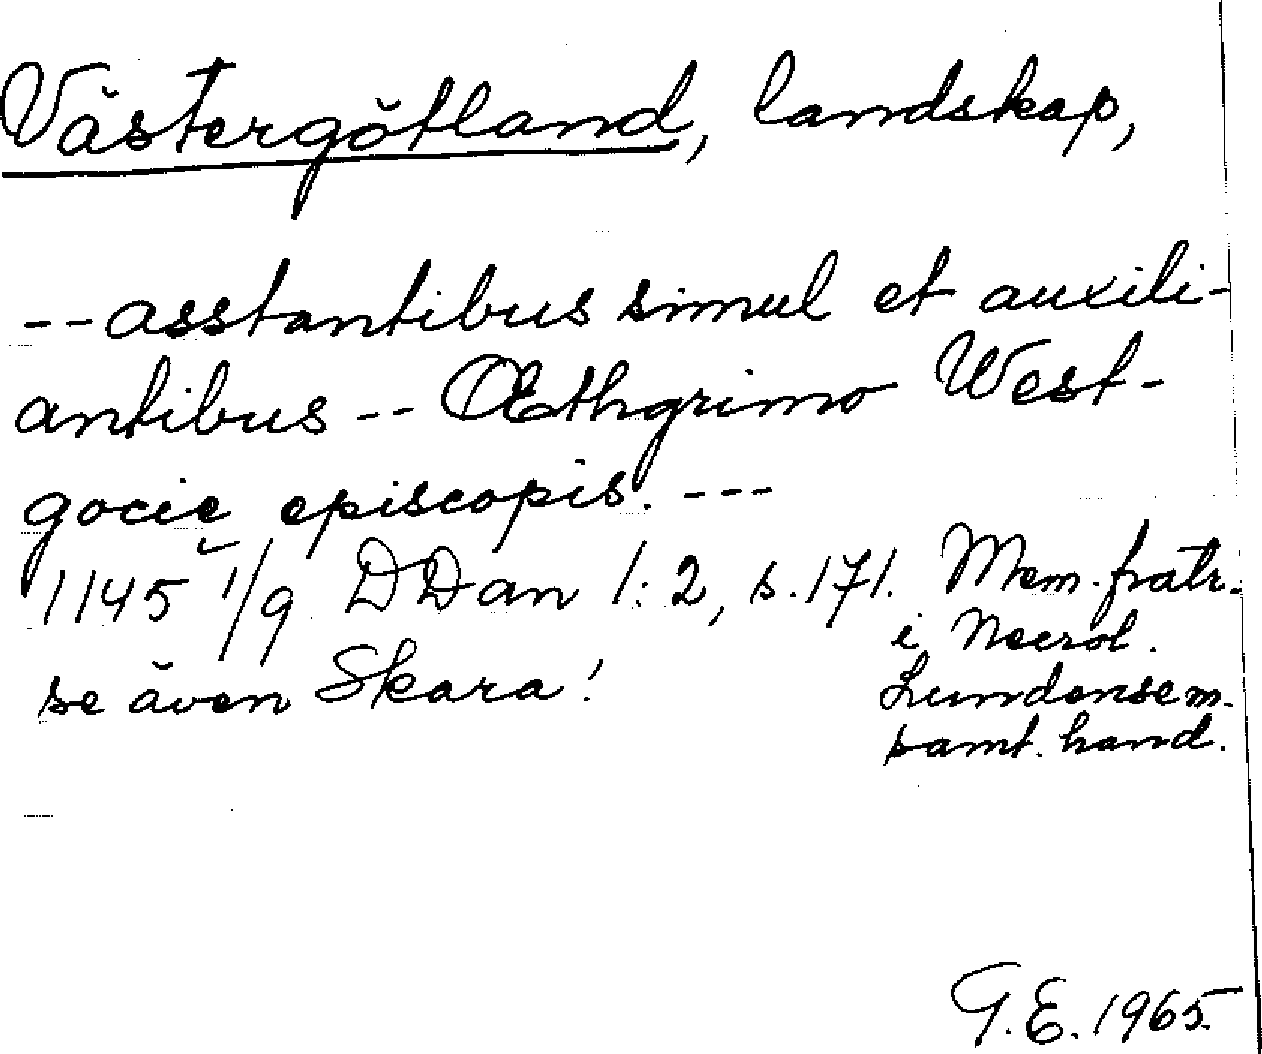 Västergötland, landskap,
-- asstantibus simul et auxili-
antibus -- Œthgrimo West-
gocie episcopis. ---
1145 1/9 DDan 1:2, s. 171. Mem. fratr.
i Necrol.
Lundensem.
samt. hand.
se även Skara!
G.E. 1965.